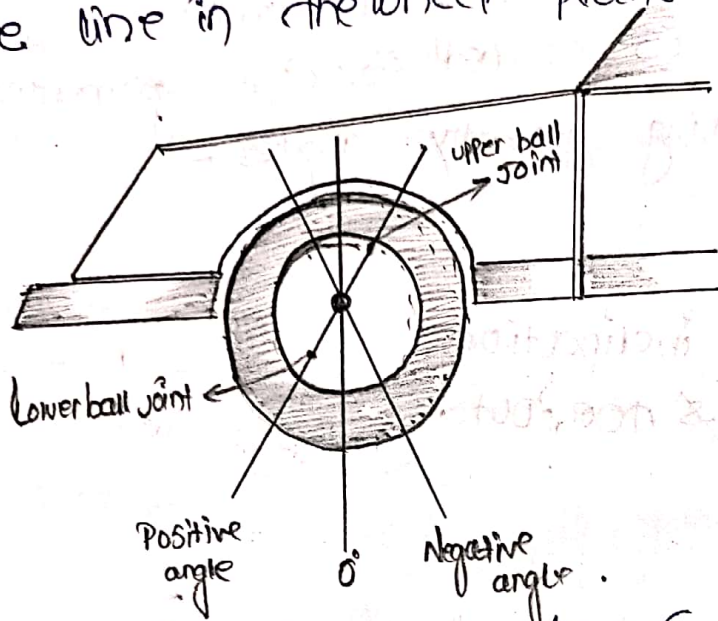 e line in the wheel
upper ball
joint
Lower ball joint
Positive
angle
0°
Negative
angle.